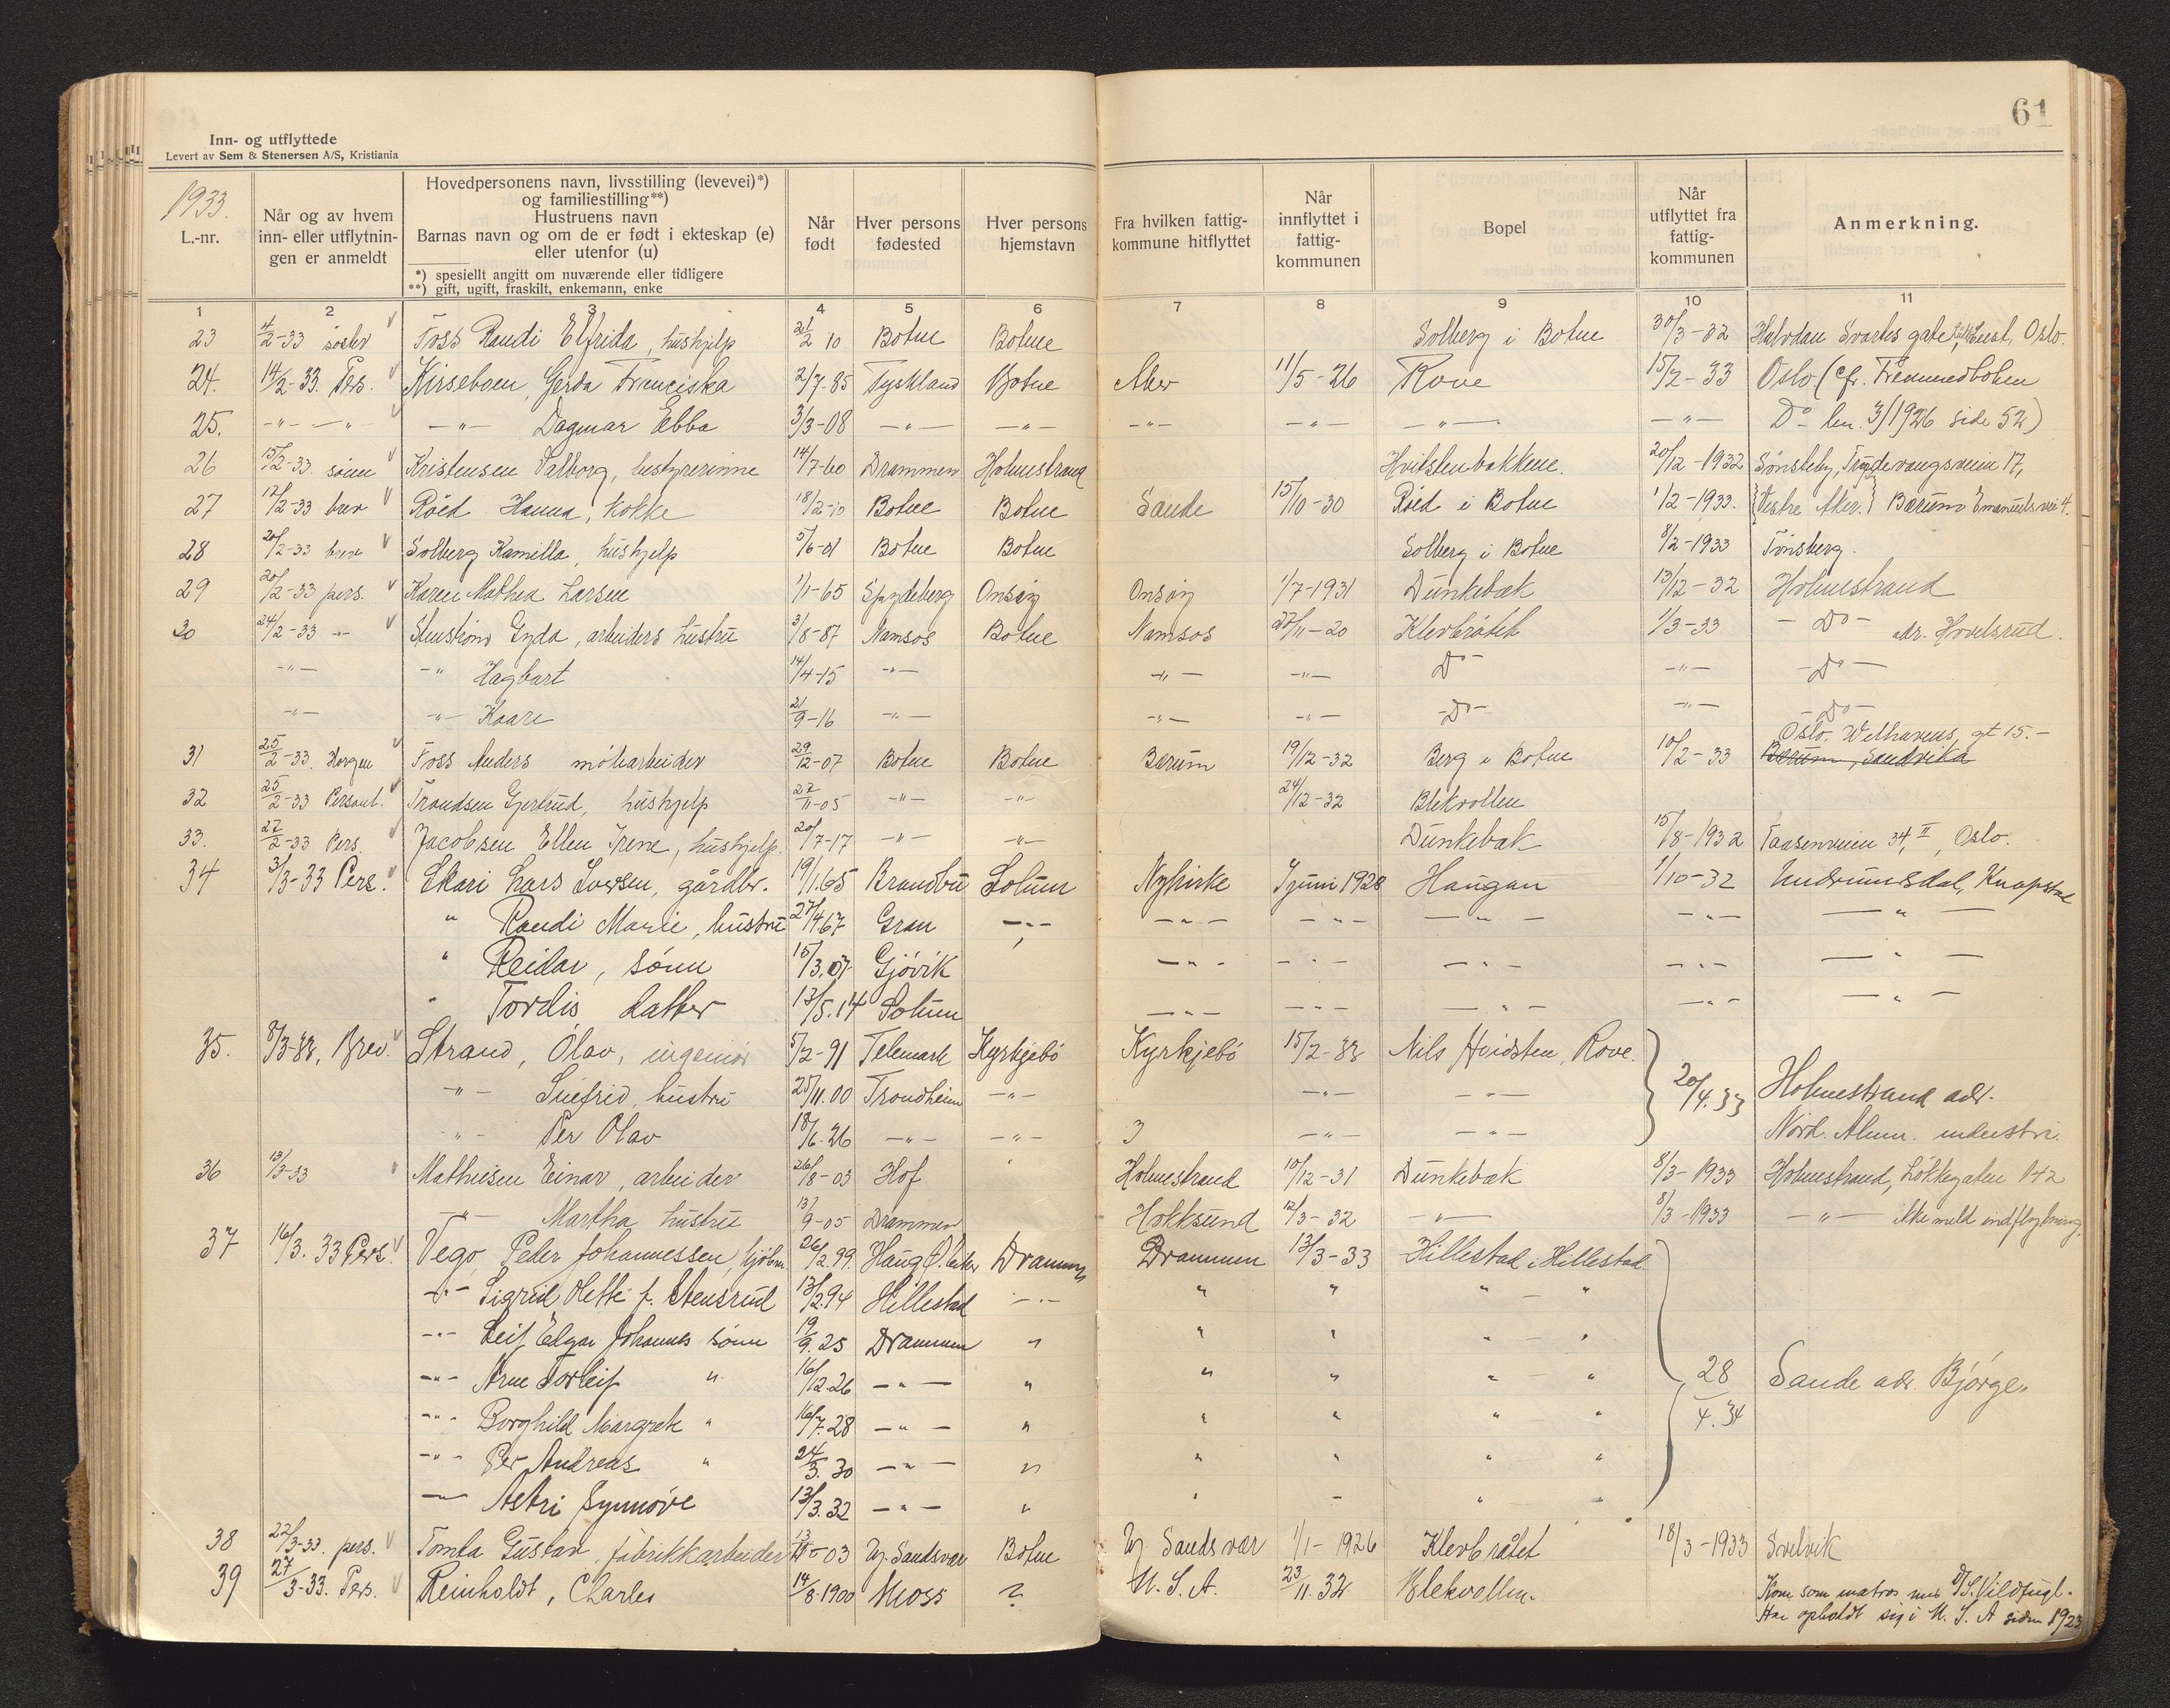 61
Inn- og utflyttede
Levert av Sem & Stenersen A/S, Kristiania
1933.
L.-nr.
Når og av hvem inn- eller utflytnin- gen er anmeldt
Hovedpersonens navn, livsstilling (levevei)*)
og familiestilling**)
Hustruens navn
Barnas navn og om de er født i ekteskap (e)
eller utenfor (u)
*) spesiellt angitt om nuværende eller tidligere
**) gift, ugift, fraskilt, enkemann, enke
Når født
Hver persons fødested
Hver persons hjemstavn
Fra hvilken fattig- kommune hitflyttet
Når innflyttet i fattig- kommunen
Bopel
Når utflyttet fra fattig- kommunen
Anmerkning.
1 2 3 4 5 6 7 8 9 10 11
23 4/2-33 søster Foss Randi Elfrida, hushjelp 21/2 10 Botne Botne Solberg i Botne 30/3-32 Halvdan Svartes gate Oslo.
24. 14/2-33. Pers. Kirseboen, Gerda Franciska 2/7-85 Tyskland Botne Aker 11/5-26 Rove 15/2-33 Oslo (cfr. Fremmedboken
25. -"- -"- -"- Dagmar Ebba 3/3-08 -"- -"- -"- -"- -"- -"- Do lnr. 3/1926 side 52)
26 15/2-33. sønn Kristensen Valborg, bestyrerinne 14/7-60 Drammen Holmestrand Hvitstenbakkene. 20/12-1932 Sønsteby, Trudvangsveien 17,
27 17/2-33 brev Røed Hanna, kokke 18/2-10 Botne Botne Sande 15/10-30 Røed i Botne 1/2-1933. {Vestre Aker.} Bærum Emanuelsvei 4.
28 20/2-33 brev Solberg Kamilla, hushjelp 5/6-01 Botne Botne Solberg i Botne 8/2-1933 Tønsberg.
29 20/2-33 pers. Karen Mathea Larsen 1/1-65 Spydeberg Onsøy Onsøy 1/7-1931 Dunkebæk 13/12-32 Holmestrand
30 24/2-33 -"- Stenstrøm Gyda, arbeiders hustru 3/8-87 Namsos Botne Namsos 27/11-20 Klevbråtet 1/3-33 -Do- adr. Hvelsrud.
-"- -"- Hagbart 14/4-15 -"- -"- -"- Do- -"- -Do-
-"- -"- Kaare 21/9-16 -"- -"- -"- -Do- -"- -Do-
Oslo. Welhavens gt 15.-
31 25/2-33. Horgen Foss Anders møllearbeider 29/12-07 Botne Botne Bærum 19/12-32 Berg i Botne 10/2-33 Bærum, Sandvika
32 25/2-33 Personl. Trondsen Gjertrud, hushjelp 27/11-05 -"- -"- 24/12-32 Blekvollen
33. 27/2-33 Pers. Jacobsen Ellen Irene, hushjelp. 20/7-17 -"- -"- Dunkebæk 15/8-1932 Taasenveien 34, II, Oslo.
34 3/3-33 Pers. Skari Lars Iversen, gårdbr. 19/1.65 Brandbu Solum Nykirke 9 juni 1928 Haugan 1/10-32 Undrumsdal, Knapstad
" Randi Marie, hustru 27/4 67 Gran -"- -"- -"- -"- -"- -"-
" Reidar, sønn 15/3.07 Gjøvik -"- -"- -"- -"- -"-
" Tordis datter 13/5.14 Solum -"- -"- -"- -"- -"-
35. 8/3-33, Brev. Strand, Olav, ingeniør 5/2-91 Telemark Kyrkjebø Kyrkjebø 15/2-33 Nils Hvidsten, Rove. 20/4.33 Holmestrand adr.
-"- hustru 25/11.00 Trondheim -"- -"- -"-
-"- Per Olav 18/6.26 -"- -"- -"- -"- Nord. Alum. industri.
36 13/3-33 Mathisen Einar, arbeider 26/8-03 Hof Holmestrand 10/12-31 Dunkebæk 8/3-1933 Holmestrand, Løkkegaten 142
-"- Martha hustru 13/9-05 Drammen Hokksund 12/3-32 -"- 8/3-1933 -"- ikke meld indflytning.
37 16/3.33 Pers. Vego, Peder Johannessen, 26/2.99. Haug Ø. Eiker Drammen Drammen 13/3-33 Hillestad i Hillestad
-"- Sigrid Hette f. Stensrud 13/2.94 Hillestad -"- " " " "
-"- Leif Edgar Johannes sønn 19/9.25 Drammen " " " " "
-"- Arne Torleif " 16/12.26 -"- " " " " " 28/4.34 Sande adr. Bjørge.
-"- Borghild Margrete " 16/7.28 -"- " " " " "
-"- Per Andreas " 24/3.30 -"- " " " " "
-"- Astri Synnøve 13/3.32 -"- " " " " "
38 22/3-33. pers. Tomta Gustav, fabrikkarbeider 13/10-03 Y. Sandsvær Botne Y. Sandsvær 1/1-1926 Klevbråtet 18/3-1933 Svelvik
39 27/3-33. Pers. Reinholdt, Charles 14/8-1900 Moss ? U.S.A. 23/11.32 Blekvollen. Kom som matros med D/S. Vildfugl.
Har opholdt sig i U.S.A siden 1923